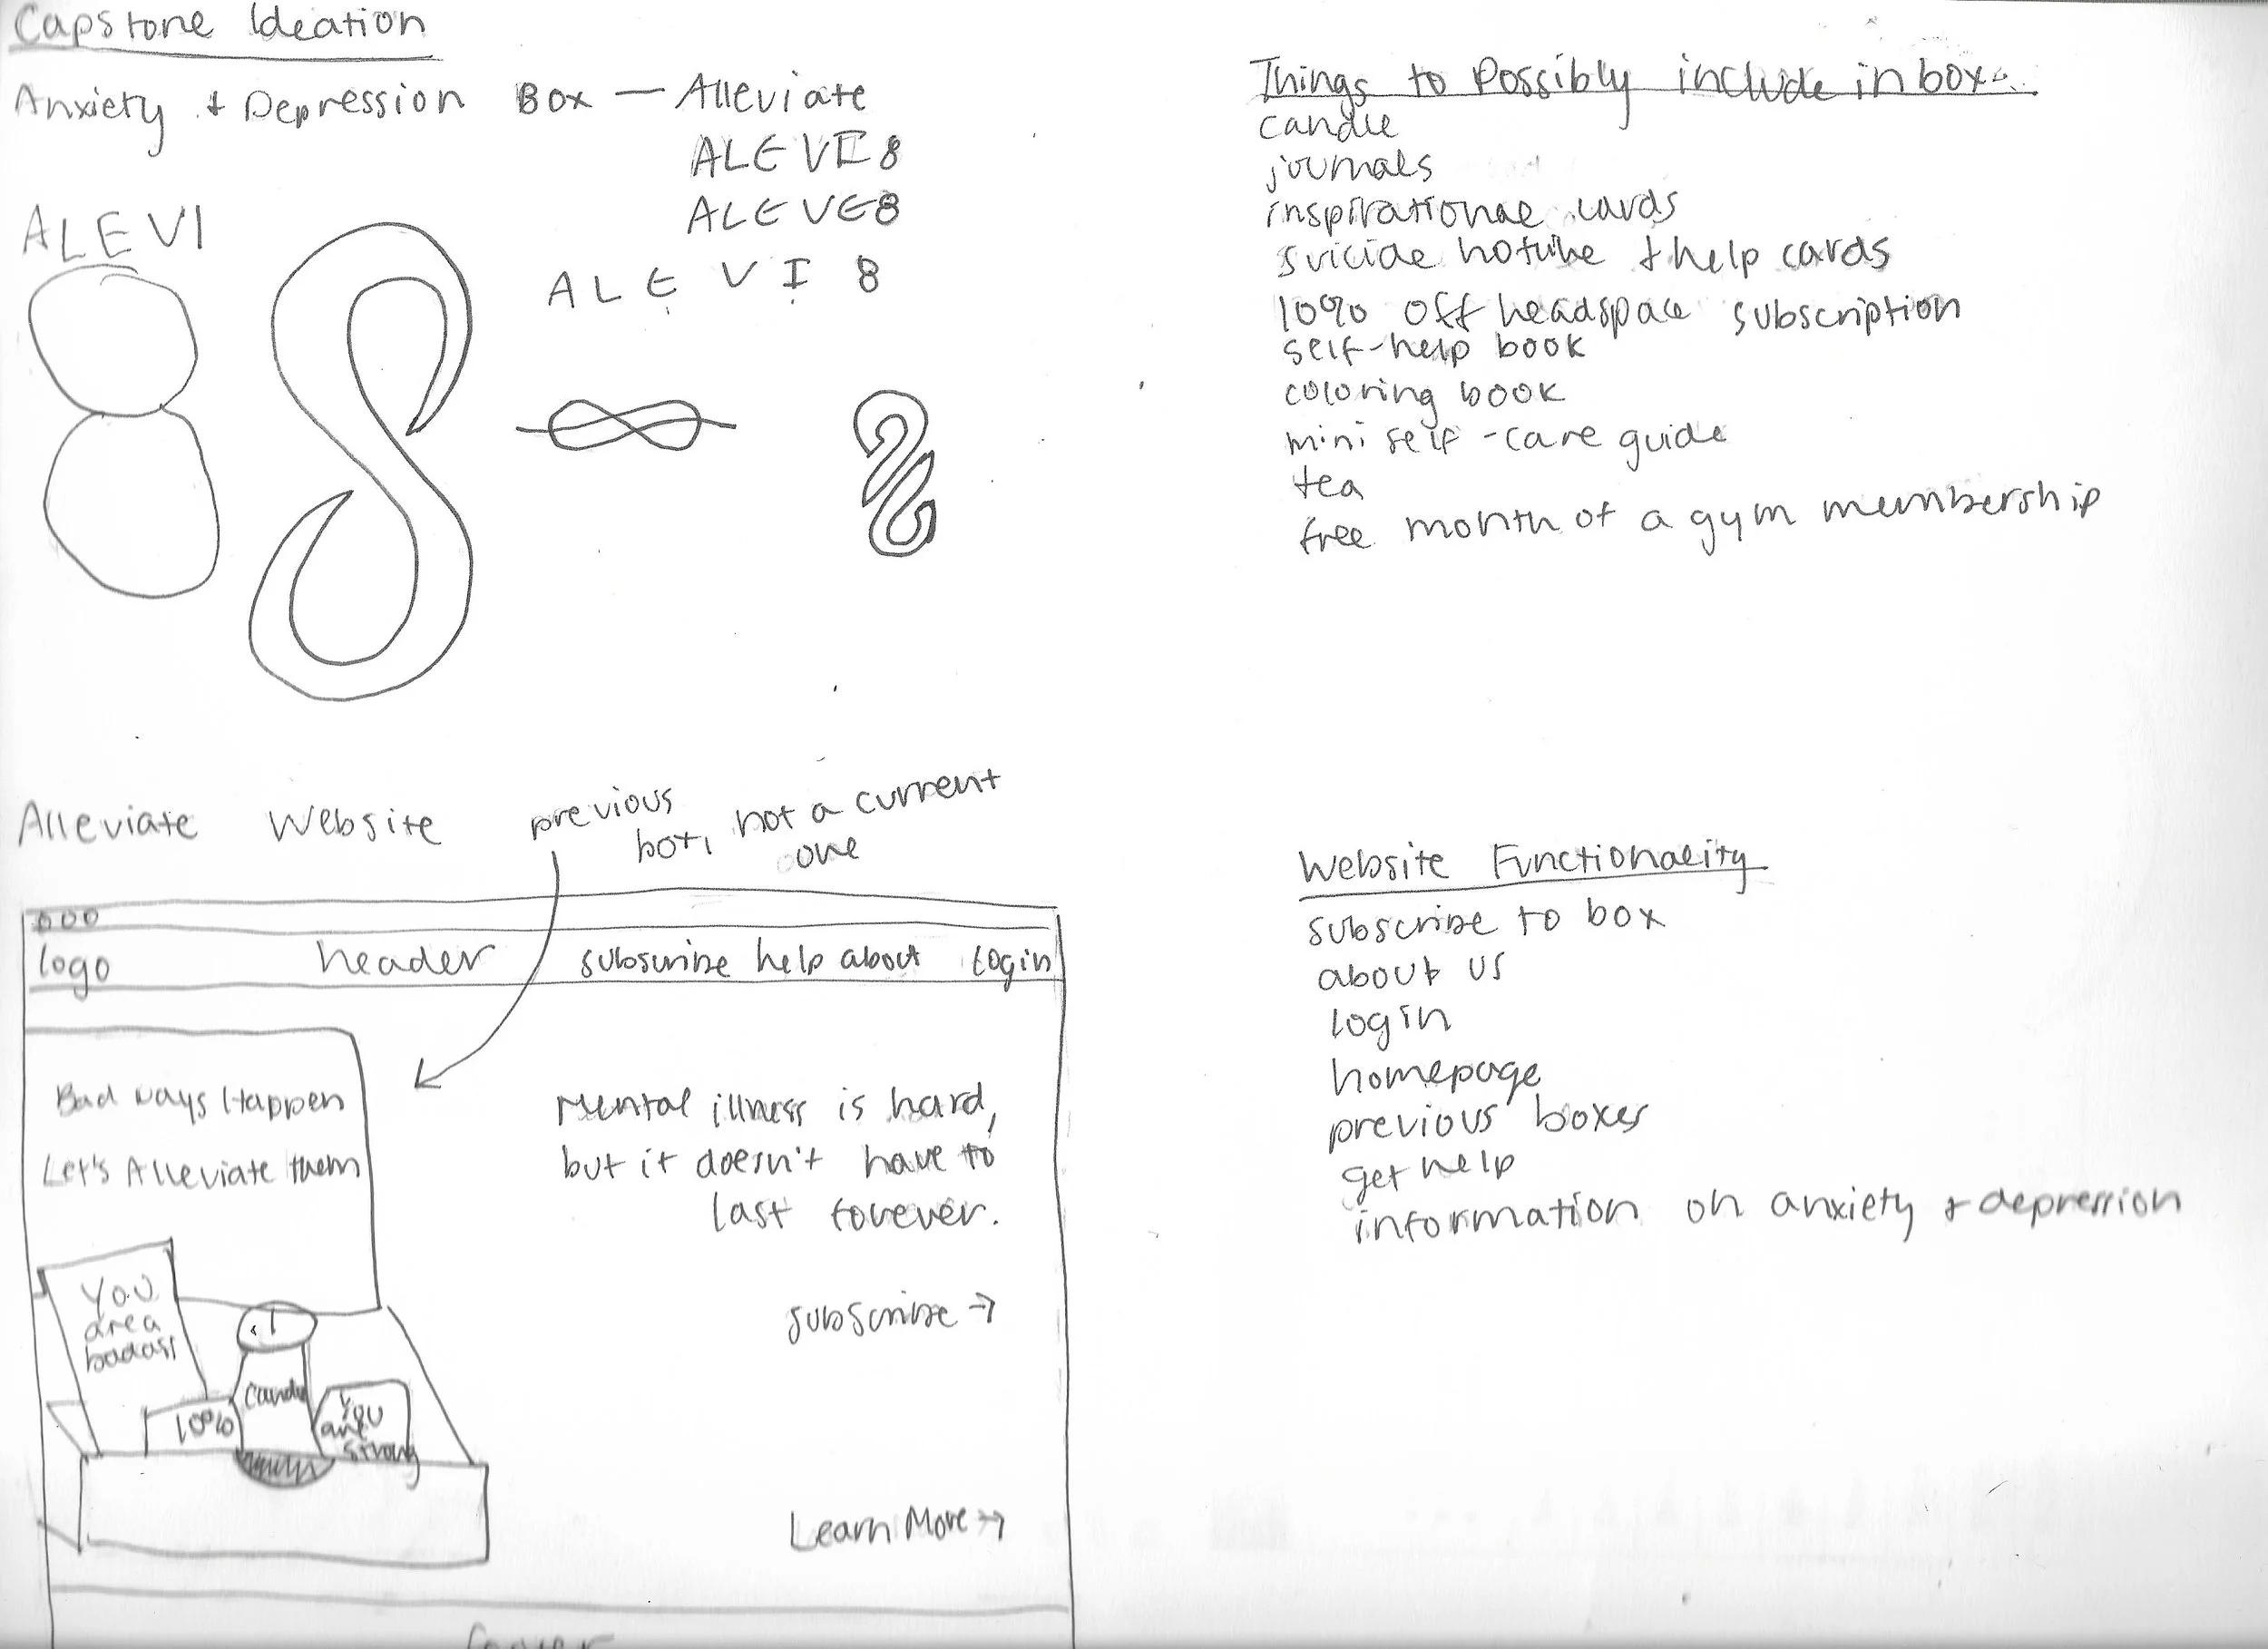 Capstone Ideation
Anxiety + Depression Box — Alleviate
ALEVE8
ALEVE8
ALEVI8
ALEVI
8
Things to Possibly include in box
candle
journals
inspirational cards
suicide hotline + help cards
10% off headspace subscription
self-help book
coloring book
mini self-care guide
tea
free month of a gym membership
Alleviate Website
previous box, not a current one
logo header subscribe help about login
Bad Days Happen
Let's Alleviate them
Mental illness is hard,
but it doesn't have to
last forever.
subscribe →
Learn More →
You
are a
badass
10%
candle
You
are
strong
footer
Website Functionality
subscribe to box
about us
login
homepage
previous boxes
get help
information on anxiety + depression